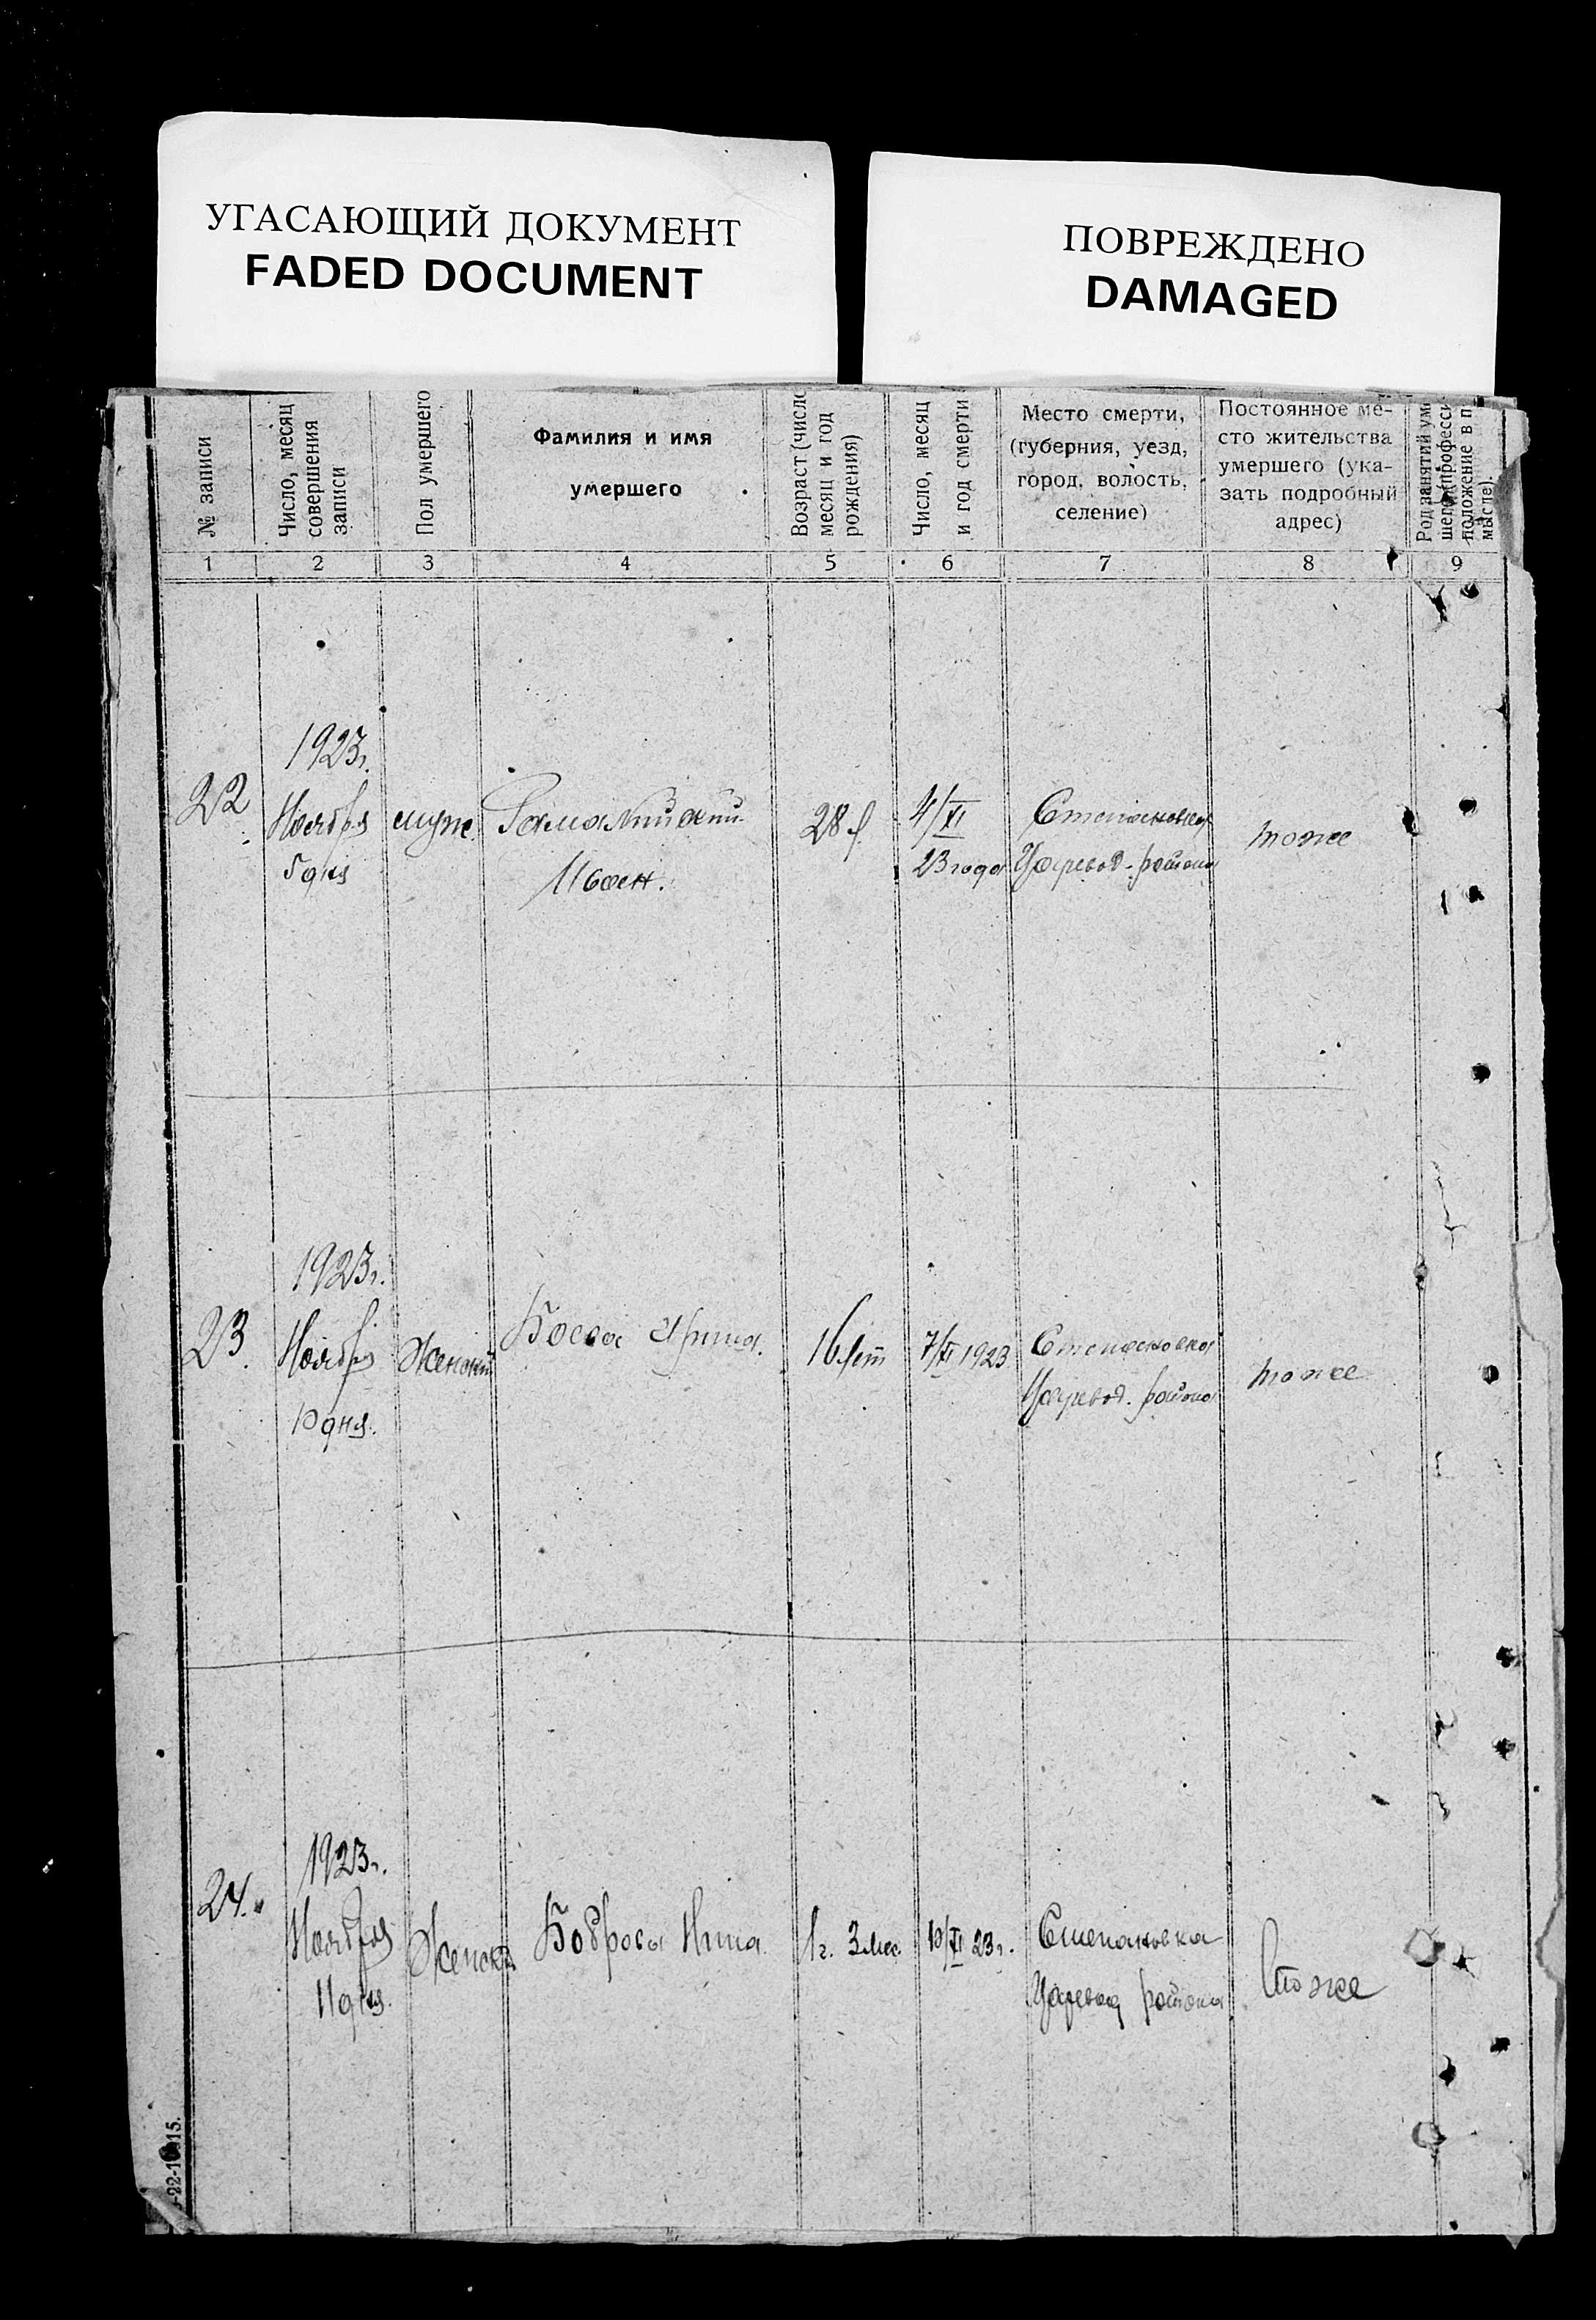 УГАСАЮЩИЙ ДОКУМЕНТ
FADED DOCUMENT
ПОВРЕЖДЕНО
DAMAGED
№ записи
Число, месяц
совершения
записи
Пол умершего
Фамилия и имя
умершего
Возраст (число
месяц и год
рождения)
Число, месяц
и год смерти
Место смерти,
(губерния, уезд,
город, волость,
селение)
Постоянное ме-
сто жительства
умершего (ука-
зать подробный
адрес)
Род занятий ум
шего (професси
положение в п
мысле).
1 2 3 4 5 6 7 8 9
22
1923г.
Ноября
5 дня
муж.
Иван.
28 л.
4/XI
23 года
Степановка
Царевод. района
тоже
23.
1923г.
Ноября
10 дня.
Женский
Босва Ирина.
16 лет
7/XI 1923
Степановка
Царевод. района
тоже
24.
1923г.
Ноября
11 дня.
Женск.
Боброва Нина.
1 г. 3 мес.
10/XI 23г.
Степановка
Царевод района
тоже
-22-10015.